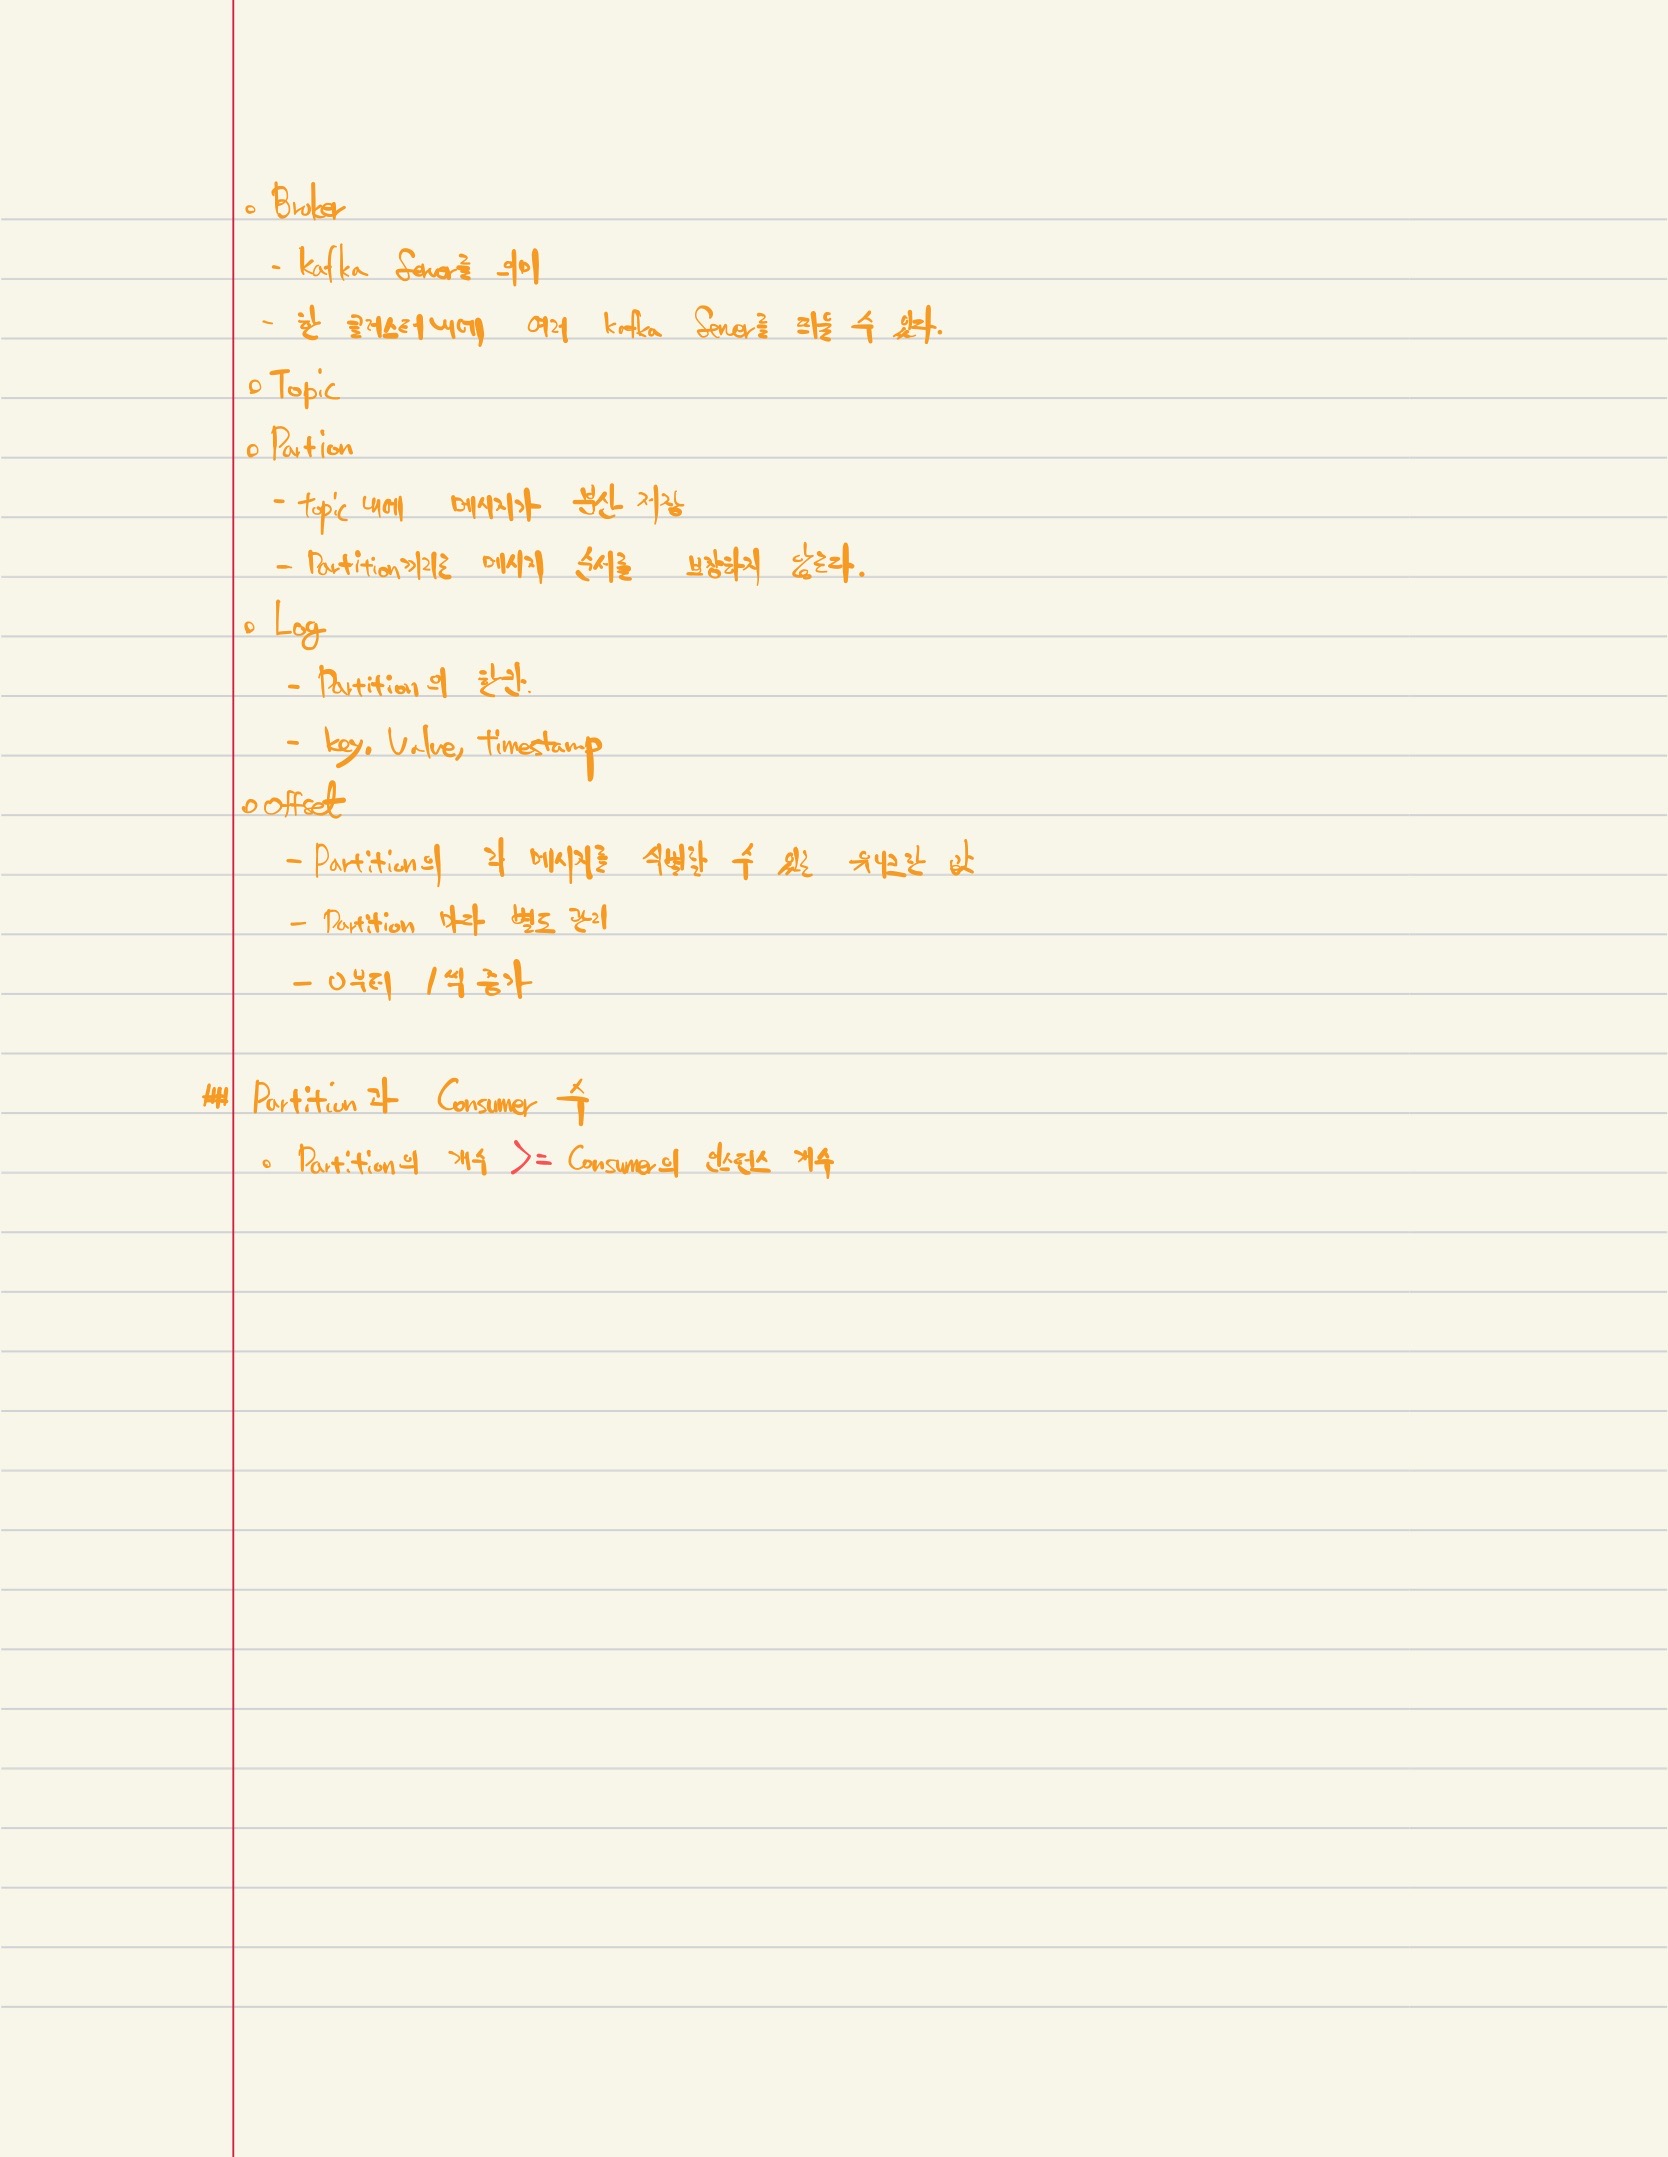 ◦ Broker
- Kafka Server를 의미
- 한 클러스터내에 여러 Kafka Server를 띄울 수 있다.
◦ Topic
◦ Partion
- topic 내에 메시지가 분산 저장
- Partition끼리는 메시지 순서를 보장하지 않는다.
◦ Log
- Partition의 한칸.
- key, Value, timestamp
◦ offset
- Partition의 각 메시지를 식별할 수 있는 유니크한 값
- Partition 마다 별도 관리
- 0부터 1씩 증가
## Partition과 Consumer 수
◦ Partition의 개수 >= Consumer의 인스턴스 개수